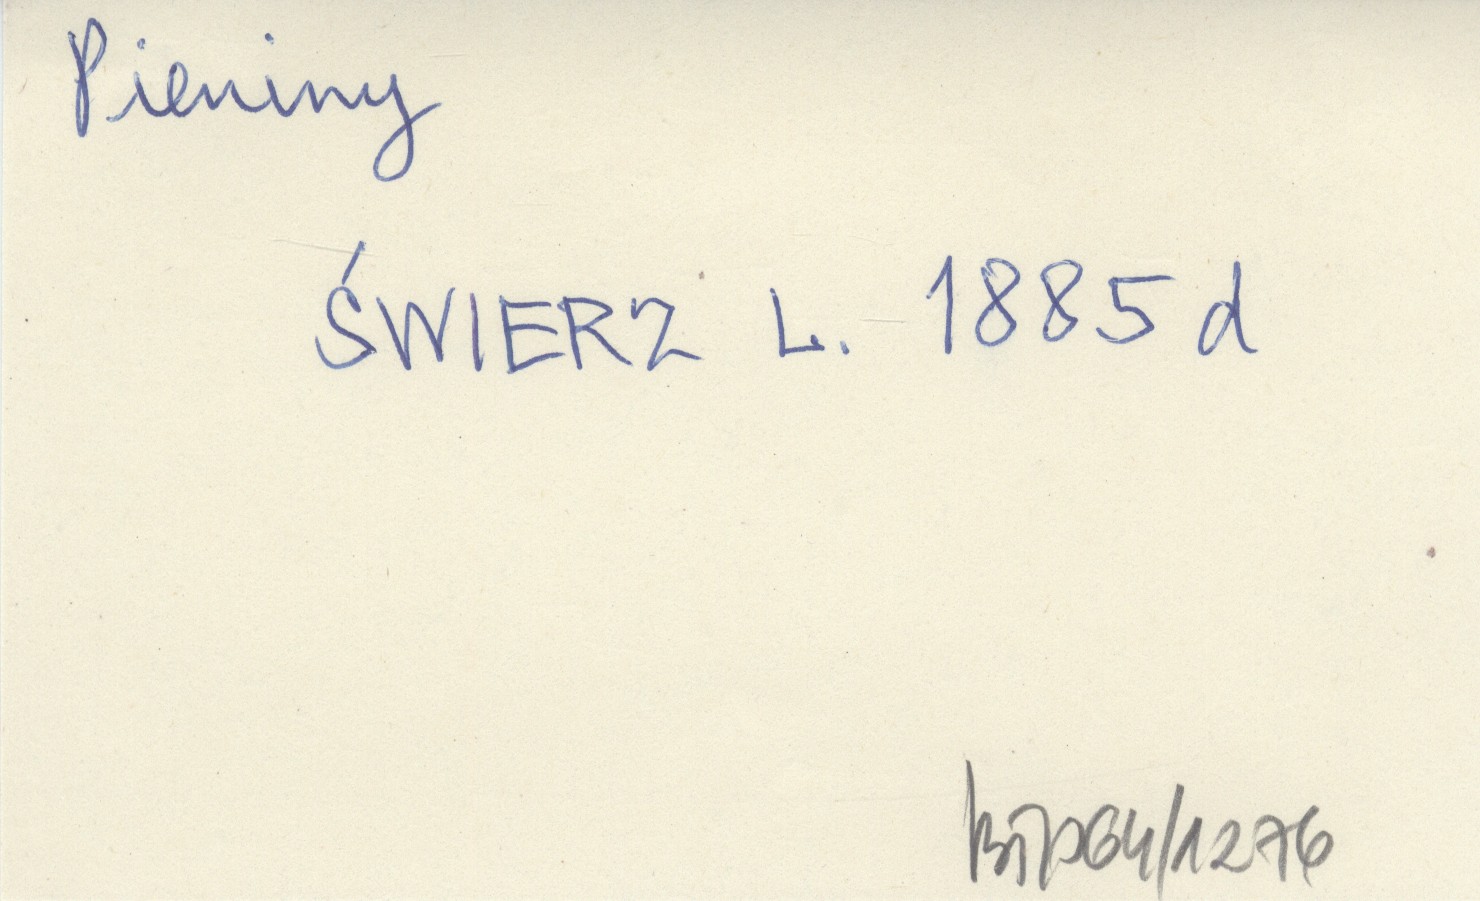 Pieniny
ŚWIERZ L. 1885 d
/1276